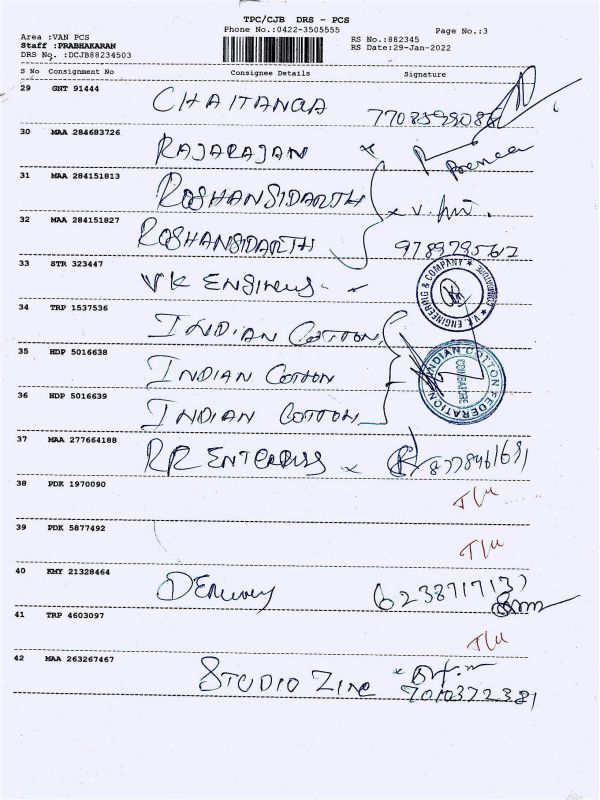 TPC/CJB DRS - PCS
Phone No.:0422-3505555
Page No.:3
Area :VAN PCS
Staff :PRABHAKARAN
DRS No. :DCJB88234503
RS No.:882345
RS Date:29-Jan-2022
S No Consignment No Consignee Details Signature
29 GNT 91444 CHAITANGA
30 MAA 284683726 RAJARAJAN
31 MAA 284151813 ROSHANSIDARTH
32 MAA 284151827 ROSHANSIDARTH
33 STR 323447 VK
V.K. ENGINEERING & COMPANY
COIMBATORE
34 TRP 1537536 INDIAN COTTON
35 HDP 5016638 INDIAN COTTON
INDIAN COTTON FEDERATION
COIMBATORE
36 HDP 5016639 INDIAN COTTON
37 MAA 277664188 RR
38 PDK 1970090 T/u
39 PDK 5877492 T/u
40 KMY 21328464
41 TRP 4603097 T/u
42 MAA 263267467 STUDIO ZINC
7010372381